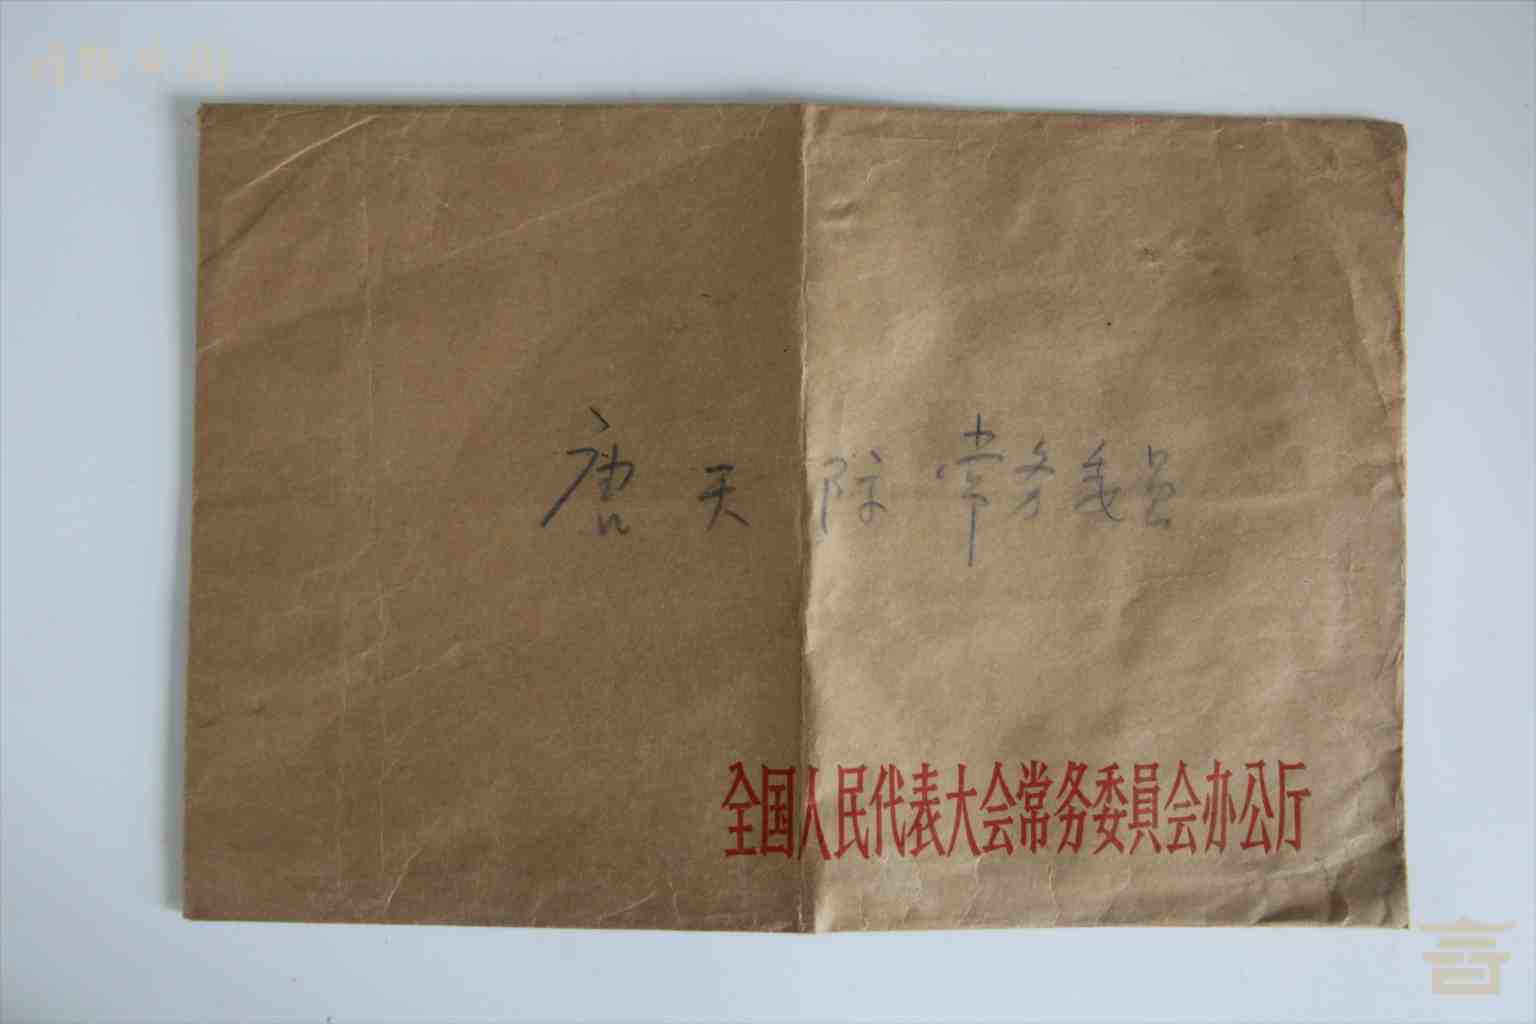 唐天际常务委员
全国人民代表大会常务委員会办公厅